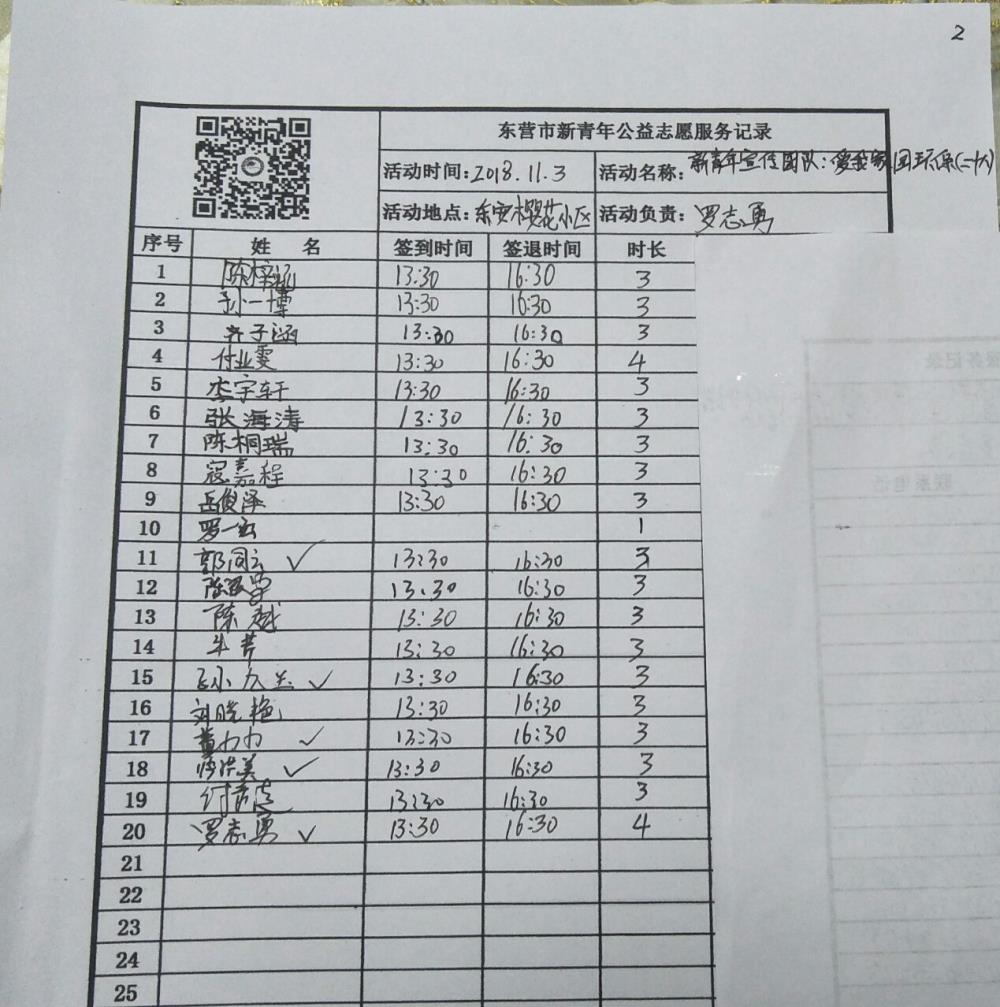 2
东营市新青年公益志愿服务记录
活动时间:2018.11.3 活动名称:新青年宣传团队:爱我家园环保(二十六)
活动地点:东安樱花小区 活动负责:罗志勇
序号 姓 名 签到时间 签退时间 时长
1 陈梓涵 13:30 16:30 3
2 孙一博 13:30 16:30 3
3 齐子涵 13:30 16:30 3
4 付业雯 13:30 16:30 4
5 李宇轩 13:30 16:30 3
6 张海涛 13:30 16:30 3
7 陈桐瑞 13:30 16:30 3
8 寇嘉程 13:30 16:30 3
9 岳俊泽 13:30 16:30 3
10 罗一 1
11 郭 ✓ 13:30 16:30 3
12 陈 13:30 16:30 3
13 陈越 13:30 16:30 3
14 牛芳 13:30 16:30 3
15 ✓ 13:30 16:30 3
16 刘晓艳 13:30 16:30 3
17 董力力 ✓ 13:30 16:30 3
18 美 ✓ 13:30 16:30 3
19 13:30 16:30 3
20 罗志勇 ✓ 13:30 16:30 4
21
22
23
24
25